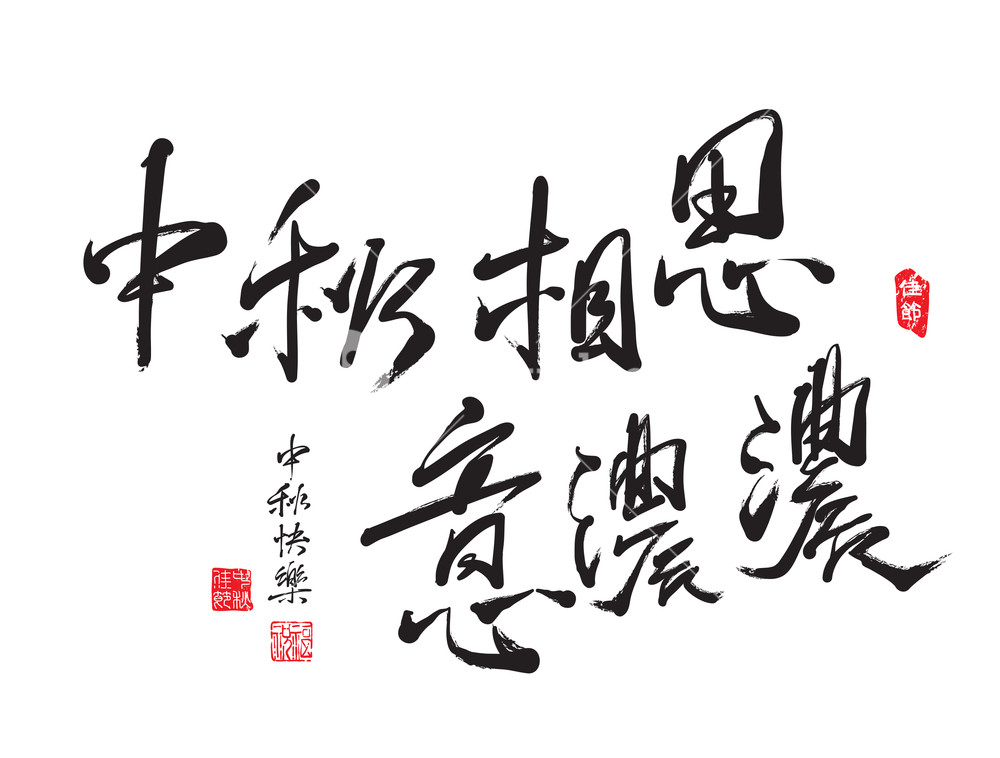 中秋相思
意濃濃
佳節
中秋快樂
中秋佳節
祝福